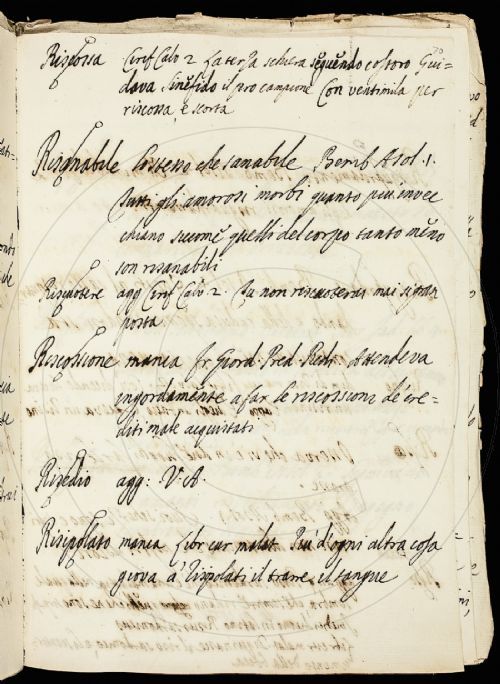 Riscossa Ciref. Calv. 2. La terza schiera seguendo costoro Gui-
dava Sinefido il pro campione Con ventimila per
riscossa, e scorta
Risanabile Lo stesso che sanabile Bemb. Asol. 1.
Tutti gli amorosi morbi quanto piu invec
chiano siccome quelli del corpo tanto meno
son risanabili
Riscuotere agg. Ciref. Calv. 2. Tu non riscuoterai mai si gran
posta
Riscossione manca fr. Giord. Pred. Attendeva
ingordamente a far le riscossioni de' cre-
diti male acquistati
Risedio agg: V. A.
Risipolato manca Libr. cur. malat. Più d'ogni altra cosa
giova a' risipolati il trarre il sangue